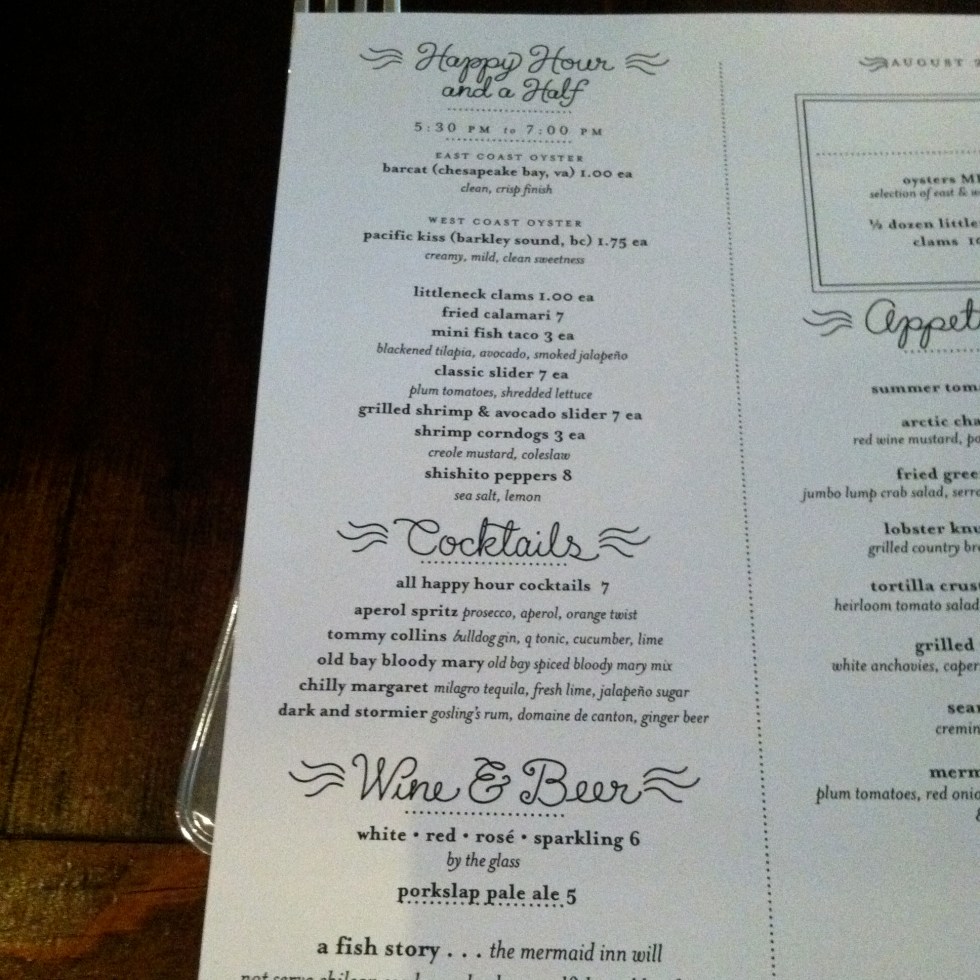 Happy Hour
and a Half
5:30 PM to 7:00 PM
EAST COAST OYSTER
barcat (chesapeake bay, va) 1.00 ea
clean, crisp finish
WEST COAST OYSTER
pacific kiss (barkley sound, bc) 1.75 ea
creamy, mild, clean sweetness
littleneck clams 1.00 ea
fried calamari 7
mini fish taco 3 ea
blackened tilapia, avocado, smoked jalapeño
classic slider 7 ea
plum tomatoes, shredded lettuce
grilled shrimp & avocado slider 7 ea
shrimp corndogs 3 ea
creole mustard, coleslaw
shishito peppers 8
sea salt, lemon
Cocktails
all happy hour cocktails 7
aperol spritz prosecco, aperol, orange twist
tommy collins bulldog gin, q tonic, cucumber, lime
old bay bloody mary old bay spiced bloody mary mix
chilly margaret milagro tequila, fresh lime, jalapeño sugar
dark and stormier gosling's rum, domaine de canton, ginger beer
Wine & Beer
white • red • rosé • sparkling 6
by the glass
porkslap pale ale 5
a fish story . . . the mermaid inn will
AUGUST
oysters
selection of east &
½ dozen little
clams
Appet
summer tom
arctic cha
red wine mustard,
fried gree
jumbo lump crab salad, serr
lobster knu
grilled country br
tortilla crus
heirloom tomato salad
grilled
white anchovies, caper
sear
cremin
merm
plum tomatoes, red onio